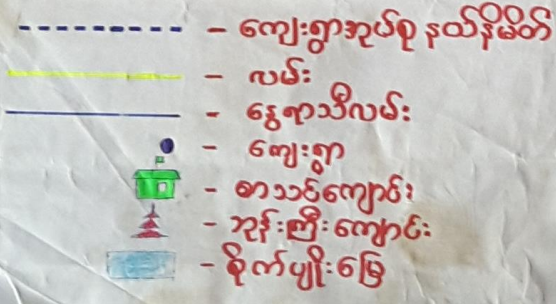 - ကျေးရွာအုပ်စု နယ်နိမိတ်
- လမ်း
- နွေရာသီလမ်း
- ကျေးရွာ
- စာသင်ကျောင်း
- ဘုန်းကြီးကျောင်း
- စိုက်ပျိုးမြေ